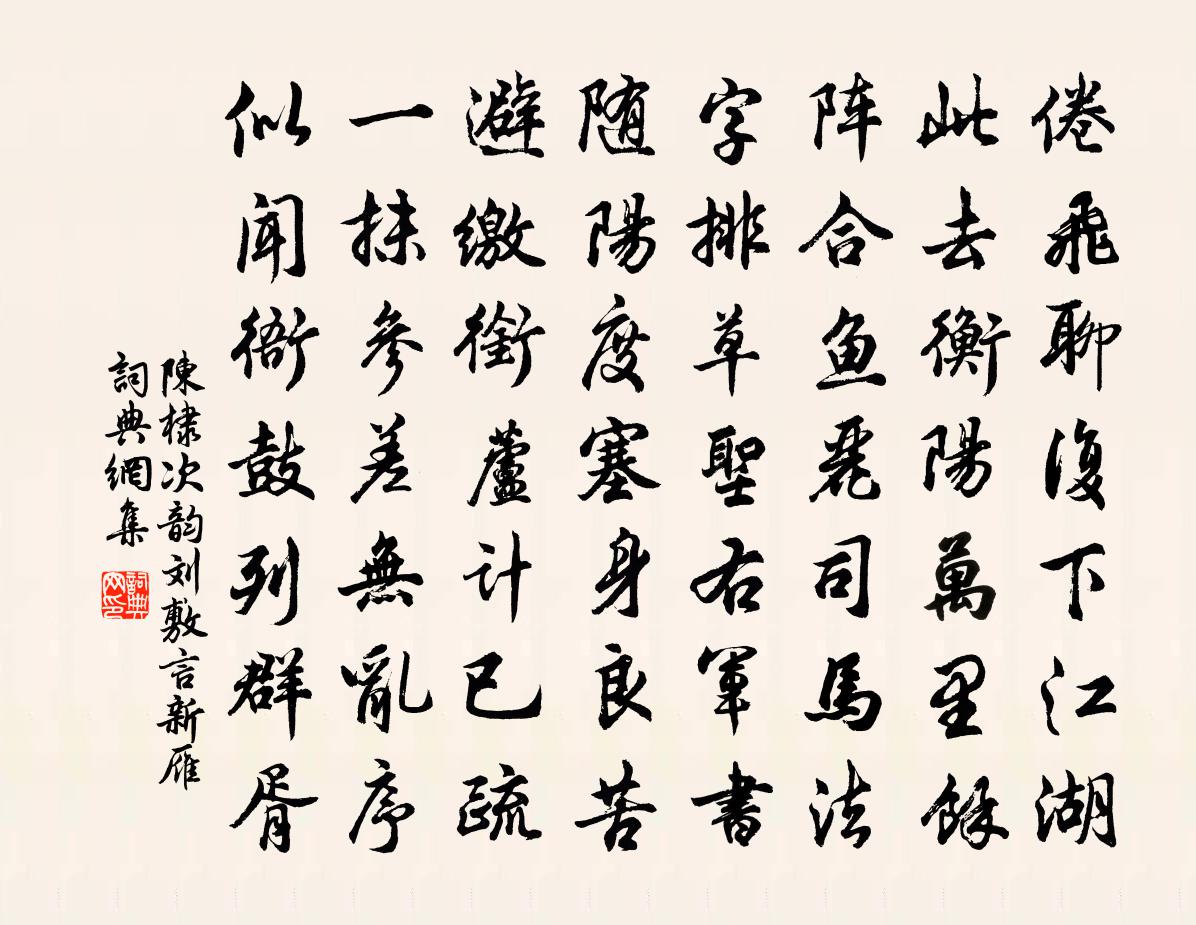 倦飛聊復下江湖
此去衡陽萬里餘
阵合魚麗司馬法
字排草聖右軍書
随陽度塞身良苦
避繳銜蘆計已疏
一抹參差無亂序
似聞衙鼓列群胥
陳棣次韵刘敷言新雁
詞典網集
詞典网印